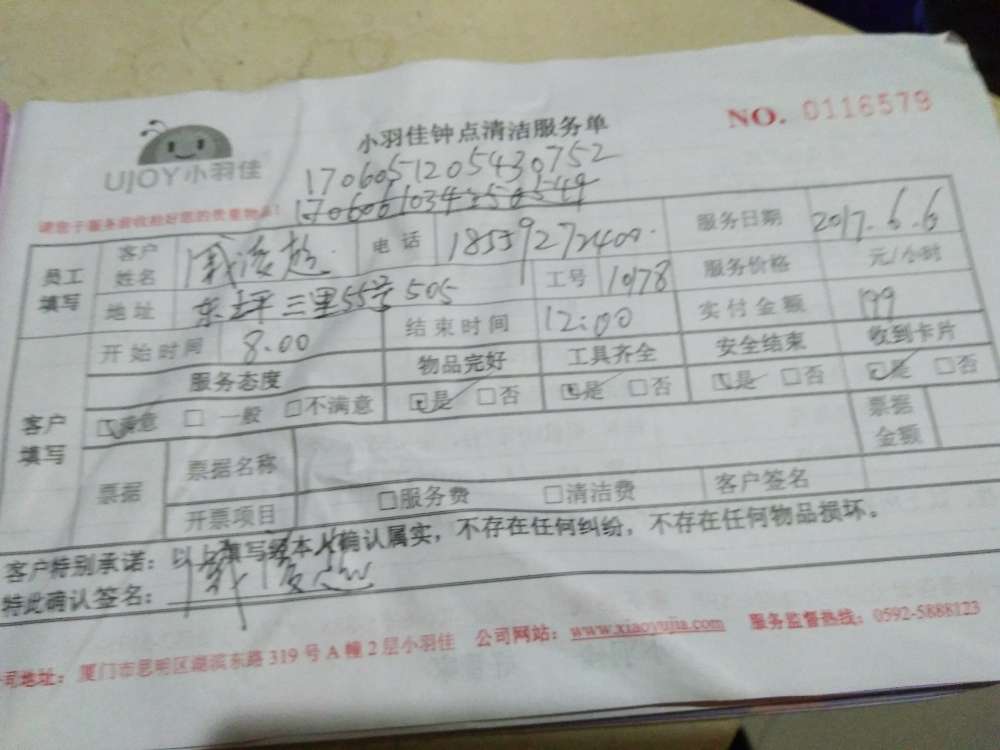 NO. 0116579
小羽佳钟点清洁服务单
UJOY小羽佳
1706051205430752
请您于服务前收拾好您的贵重物品！
员工填写 客户姓名 电话 18559272400 服务日期 2017.6.6
地址 东坪三里55号505 工号 1078 服务价格 元/小时
开始时间 8.00 结束时间 12:00 实付金额 199
客户填写 服务态度 物品完好 工具齐全 安全结束 收到卡片
满意 □ 一般 □不满意 是 □否 是 □否 是 □否 是 □否
票据 票据名称 票据金额
开票项目 □服务费 □清洁费 客户签名
客户特别承诺：以上填写经本人确认属实，不存在任何纠纷，不存在任何物品损坏。
特此确认签名：
司地址：厦门市思明区湖滨东路319号A幢2层小羽佳 公司网站：www.xiaoyujia.com 服务监督热线：0592-5888123